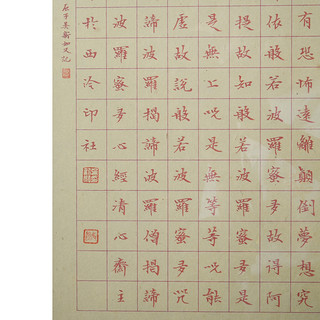 有恐怖遠離顛倒夢想究
依般若波羅蜜多故得阿
提故知般若波羅蜜多是
是無上呪是無等等呪能
虛故說般若波羅蜜多呪
諦波羅揭諦波羅僧揭諦
波羅蜜多心經清心齋主
於西泠印社